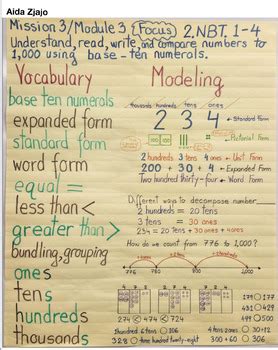 Aida Zjajo
Mission 3/Module 3 (Focus) 2.NBT. 1-4
Understand, read, write, and compare numbers to
1,000 using base-ten numerals.
Vocabulary
base ten numerals
expanded form
standard form
word form
equal =
less than <
greater than >
bundling, grouping
ones
tens
hundreds
thousands
Modeling
thousands hundreds tens ones
2 3 4 ← Standard Form
← Pictorial Form
2 hundreds 3 tens 4 ones ← Unit Form
200 + 30 + 4 ← Expanded Form
Two hundred thirty-four ← Word Form
Different ways to decompose number
2 hundreds = 20 tens
3 tens = 30 ones
234 = 20 tens + 30 ones + 4 ones
How do we count from 776 to 1,000?
776 780 800 900 1,000
274 < 474 < 724
179 ○ 177
431 ○ 429
499 ○ 500
1 hundred 6 tens ○ 106
4 tens 2 ones ○ 30+12
328 ○ three hundred twenty-eight
300 + 60 ○ 306